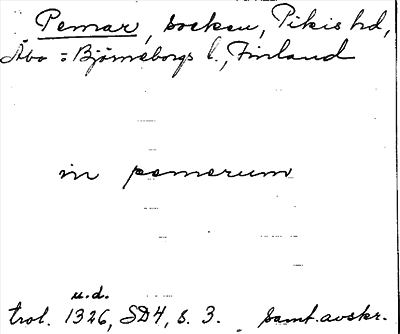 Pemar, socken, Pikis hd,
Åbo = Björneborgs l., Finland
in pemarum
u.d.
trol. 1326, SD4, s. 3. samt. avskr.